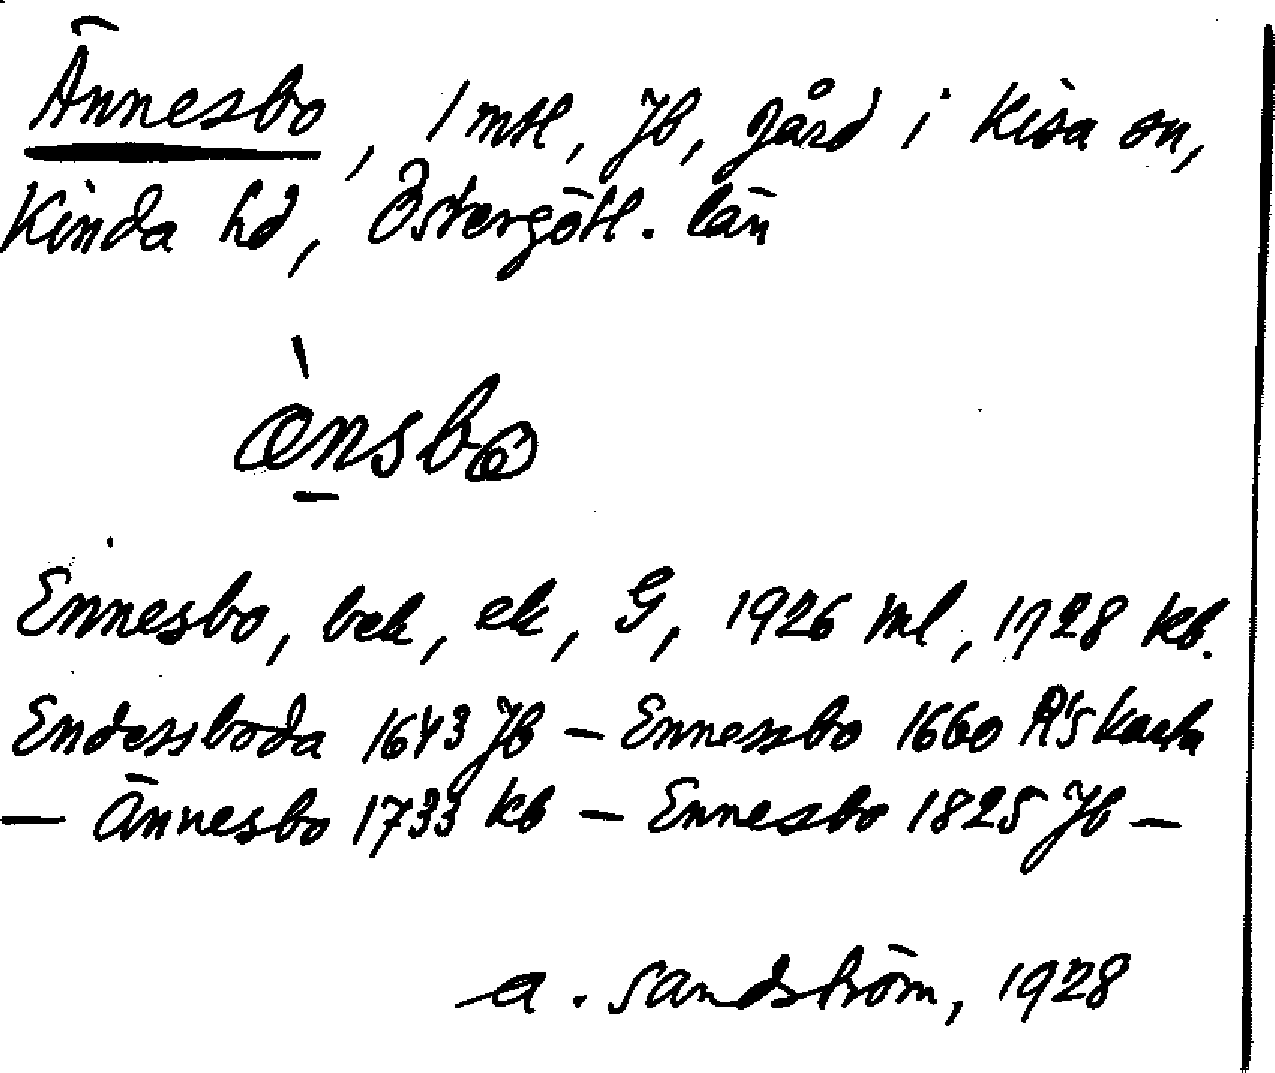 Ännesbo, 1 mtl, Jb, gård i Kisa sn,
Kinda hd, Östergötl. län
ænsbo
Ennesbo, bek, ek, G, 1926 ml, 1728 kb.
Endessboda 1643 Jb – Ennessbo 1660 R's karta
– Ännesbo 1733 kb – Ennesbo 1825 Jb –
A. Sandström, 1928